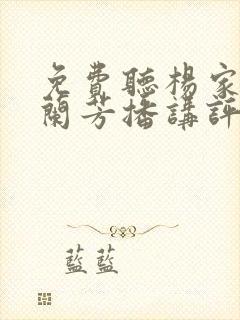 免費聽楊家
蘭芳播講評
藍藍